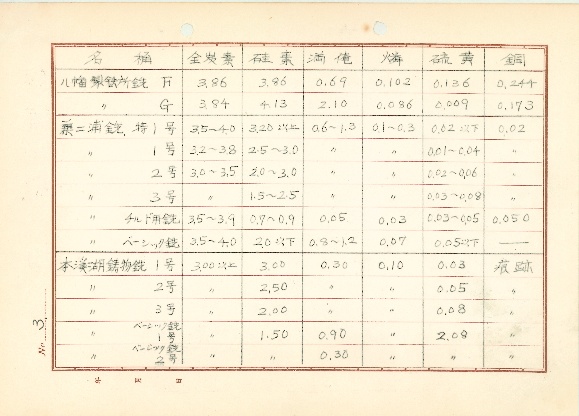 名称 全炭素 硅素 満俺 燐 硫黄 銅
八幡製鉄所銑 F 3.86 3.86 0.69 0.102 0.136 0.244
〃 G 3.84 4.13 2.10 0.086 0.009 0.173
兼二浦銑 特1号 3.5~4.0 3.20以上 0.6~1.3 0.1~0.3 0.02以下 0.02
〃 1号 3.2~3.8 2.5~3.0 〃 〃 0.01~0.04 〃
〃 2号 3.0~3.5 2.0~3.0 〃 〃 0.02~0.06 〃
〃 3号 〃 1.5~2.5 〃 〃 0.03~0.08 〃
〃 チルド用銑 3.5~3.9 0.7~0.9 0.05 0.03 0.03~0.05 0.050
〃 ベーシック銑 3.5~4.0 2.0以下 0.8~1.2 0.07 0.05以下 —
本渓湖鋳物銑 1号 3.00以上 3.00 0.30 0.10 0.03 痕跡
〃 2号 〃 2.50 〃 〃 0.05 〃
〃 3号 〃 2.00 〃 〃 0.08 〃
〃 ベーシック銑 1号 〃 1.50 0.90 〃 2.08 〃
〃 ベーシック銑 2号 〃 〃 0.30 〃 〃 〃
No. 3
年 月 日